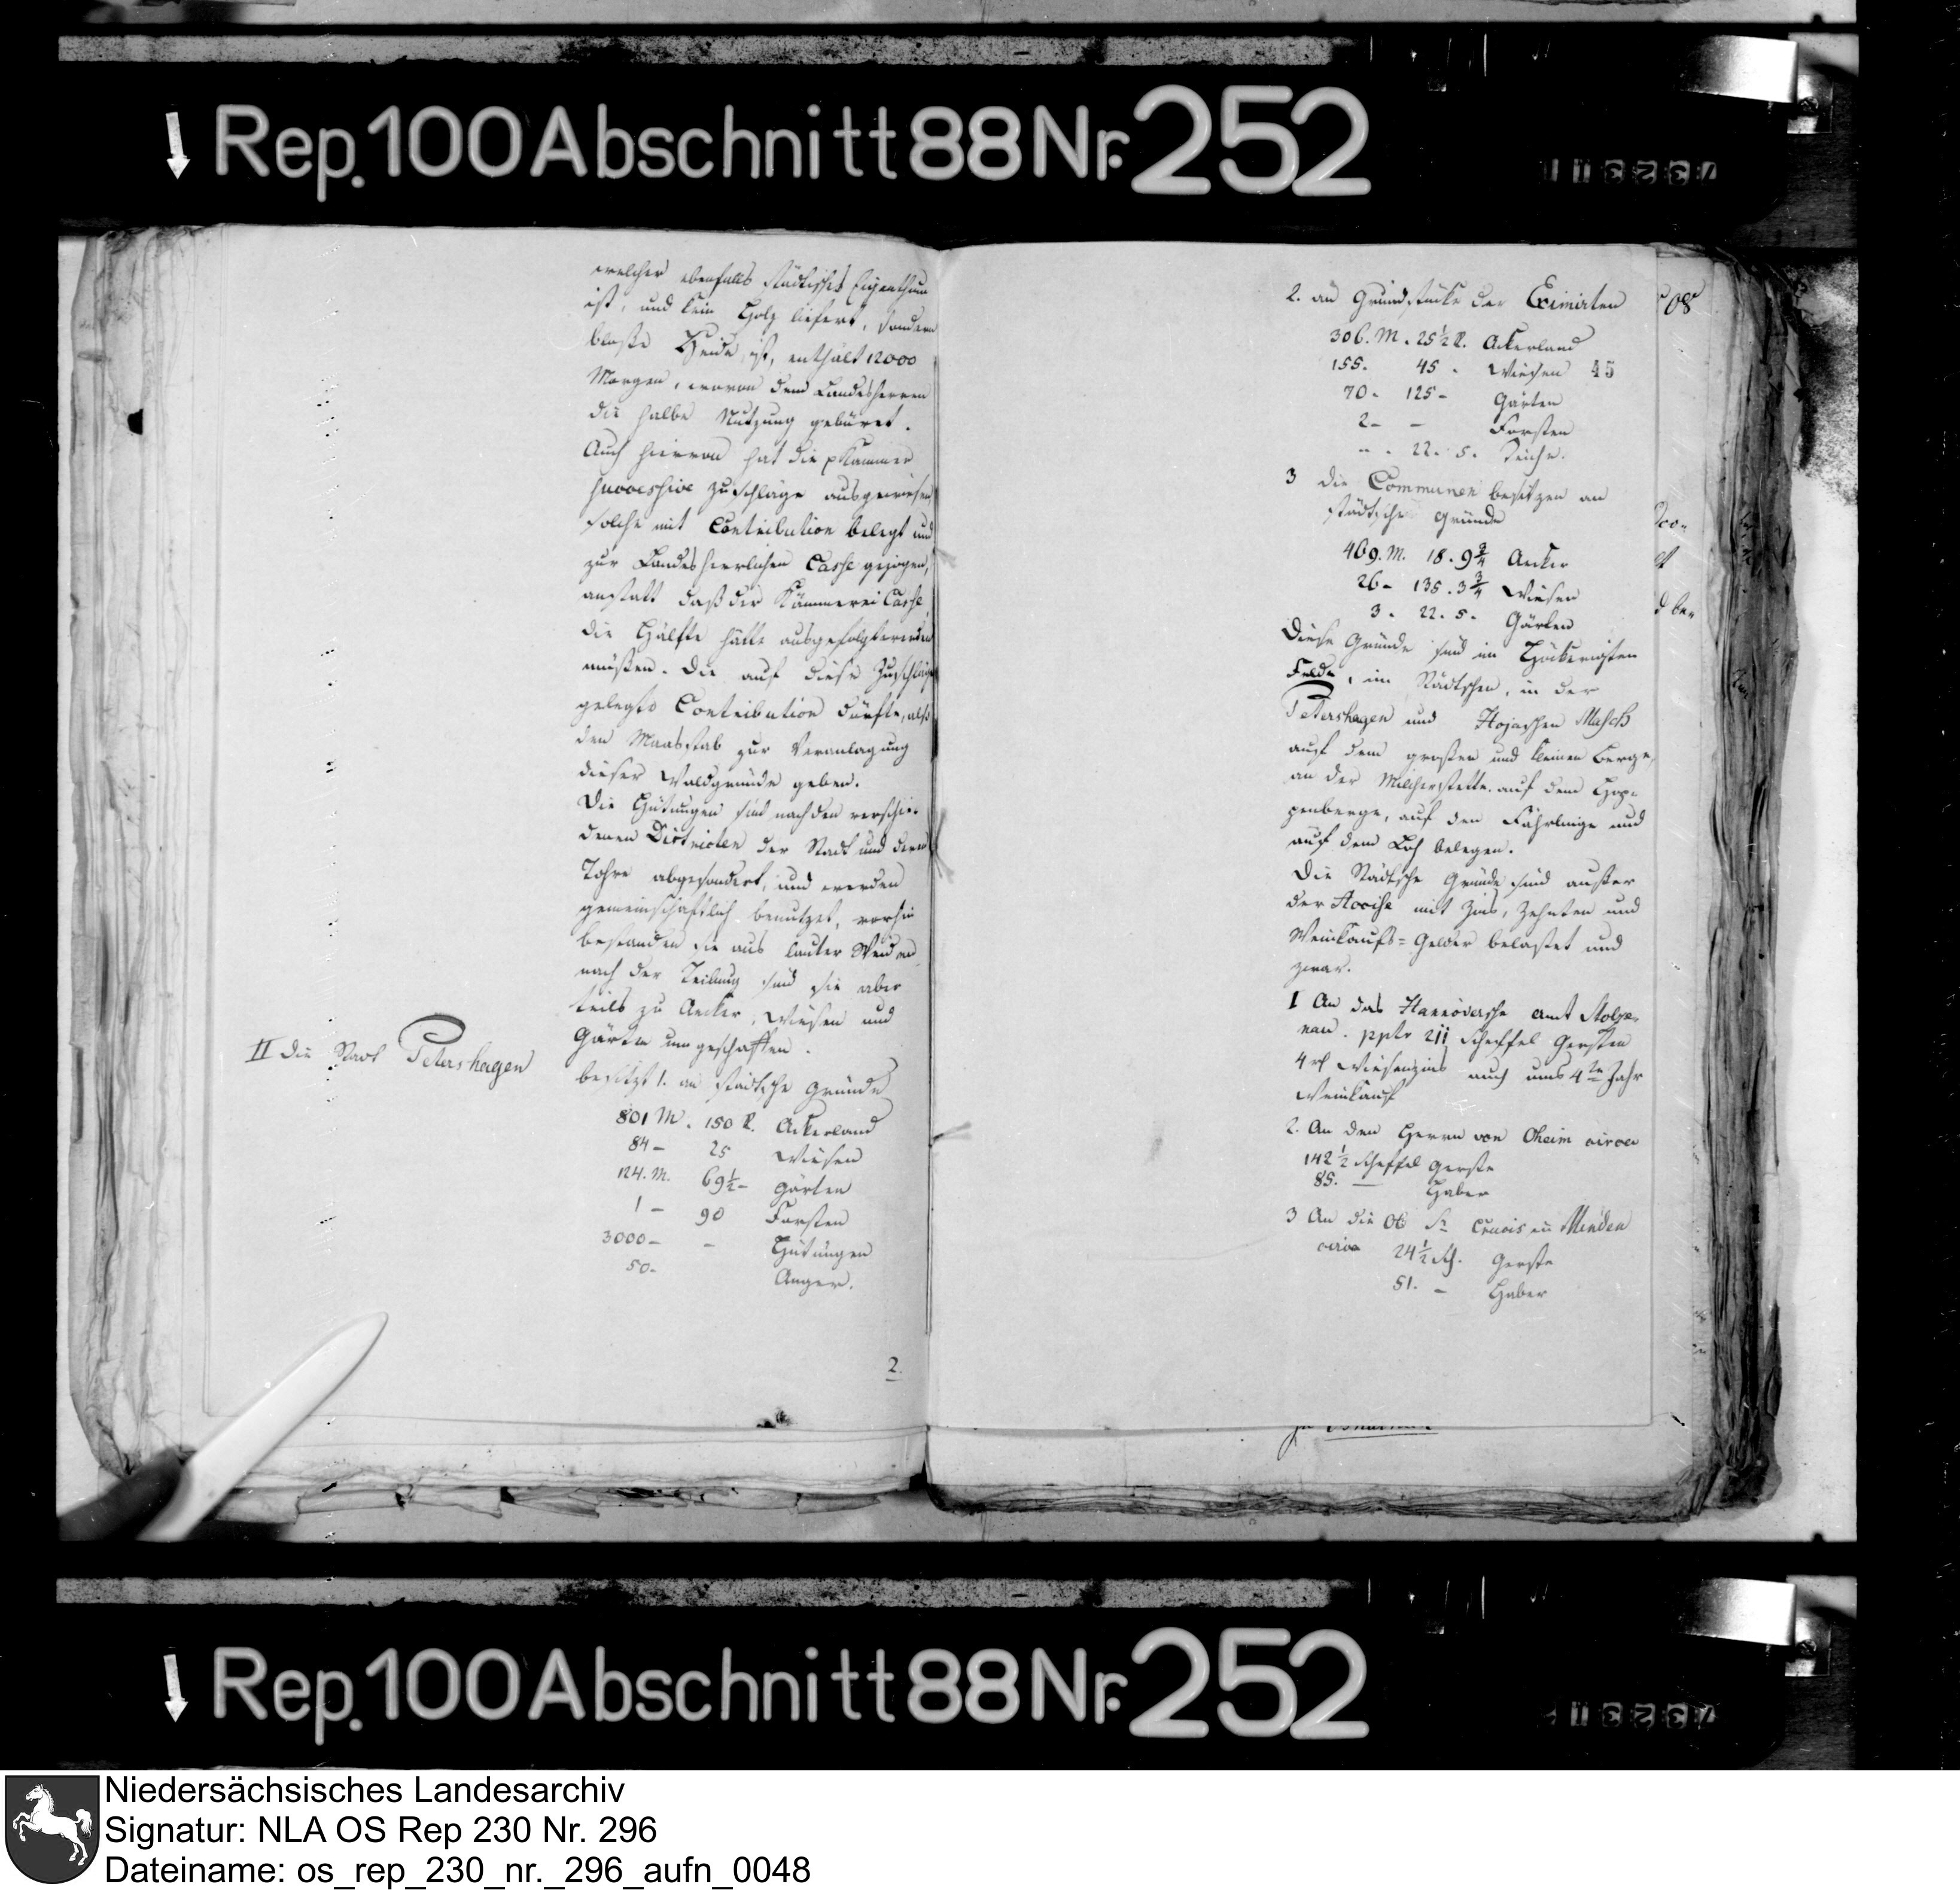 Rep. 100 Abschnitt 88 Nr. 252
welcher ebenfalls städtisches Eigenthum
ist, und kein Holz liefert, sondern
bloße Heide ist, enthält 12000
Morgen, wovon dem Landesherren
die halbe Nutzung gebüret.
Auch hiervon hat die p Kammer
successive Zuschläge ausgewiesen
solche mit Contribution belegt und
zur Landesherrlichen Casse gezogen,
anstatt daß der Kämmerei Casse
die Hälfte hätte ausgefolgt werden
müßen. Die auf diese Zuschläge
gelegte Contribution dürfte, also
den Maasstab zur Veranlagung
dieser Waldgründe geben.
Die Hütungen sind nach den verschie-
denen Districten der Stadt und deren
Tohre abgesondert, und werden
gemeinschaftlich benutzet, vorhin
bestanden sie aus lauter Weiden
nach der Teilung sind sie aber
teils zu Aecker, Wiesen und
Gärten umgeschaffen.
II Die Stadt Petershagen
besitzt 1. an städtsche Gründe
801 M. 150 R. Ackerland
84 - 25 Wiesen
124. M. 69½ - Gärten
1 - 90 Forsten
3000 - - Hütungen
50 - Anger.
2.
2. an Grundstücke der Eximirten
306. M. 25½ R. Ackerland
155. 45 - Wiesen
45
70 - 125 - Gärten
2 - - Forsten
- - 22. 5. Teiche.
3 die Communen besitzen an
städtsche Gründe
469. M. 18. 9¾ Aecker
26 - 135. 3¾ Wiesen
3. 22. 5. Gärten
Diese Gründe sind im
Felde, im Städtschen, in der
Petershagen und Hojaschen Masch
auf dem großen und kleinen Berge,
an der Milcherstette. auf dem Hop-
penberge, auf den Fährlinge und
auf dem Loh belegen.
Die Städtsche Gründe sind außer
der Accise mit Zins, Zehnten und
Weinkaufs = Gelder belastet und
zwar.
1 An das Hannöversche Amt Stolze-
nau. pptr Scheffel Gersten
4 rl Wiesenzins auch ums 4te Jahr
Weinkauf
2. An den Herrn von Oheim circa
142½ Scheffel Gerste
85. — Haber
3 An die Crucis in Minden
circa 24½ Sch. Gerste
51. - Haber
Rep. 100 Abschnitt 88 Nr. 252
Niedersächsisches Landesarchiv
Signatur: NLA OS Rep 230 Nr. 296
Dateiname: os_rep_230_nr._296_aufn_0048